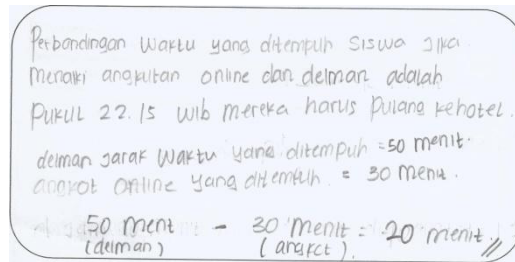 Perbandingan waktu yang ditempuh siswa jika
menaiki angkutan online dan delman adalah
Pukul 22.15 wib mereka harus pulang kehotel.
delman jarak waktu yang ditempuh = 50 menit.
angkot online yang ditempuh = 30 menit.
50 menit - 30 menit = 20 menit. //
(delman) (angkot).